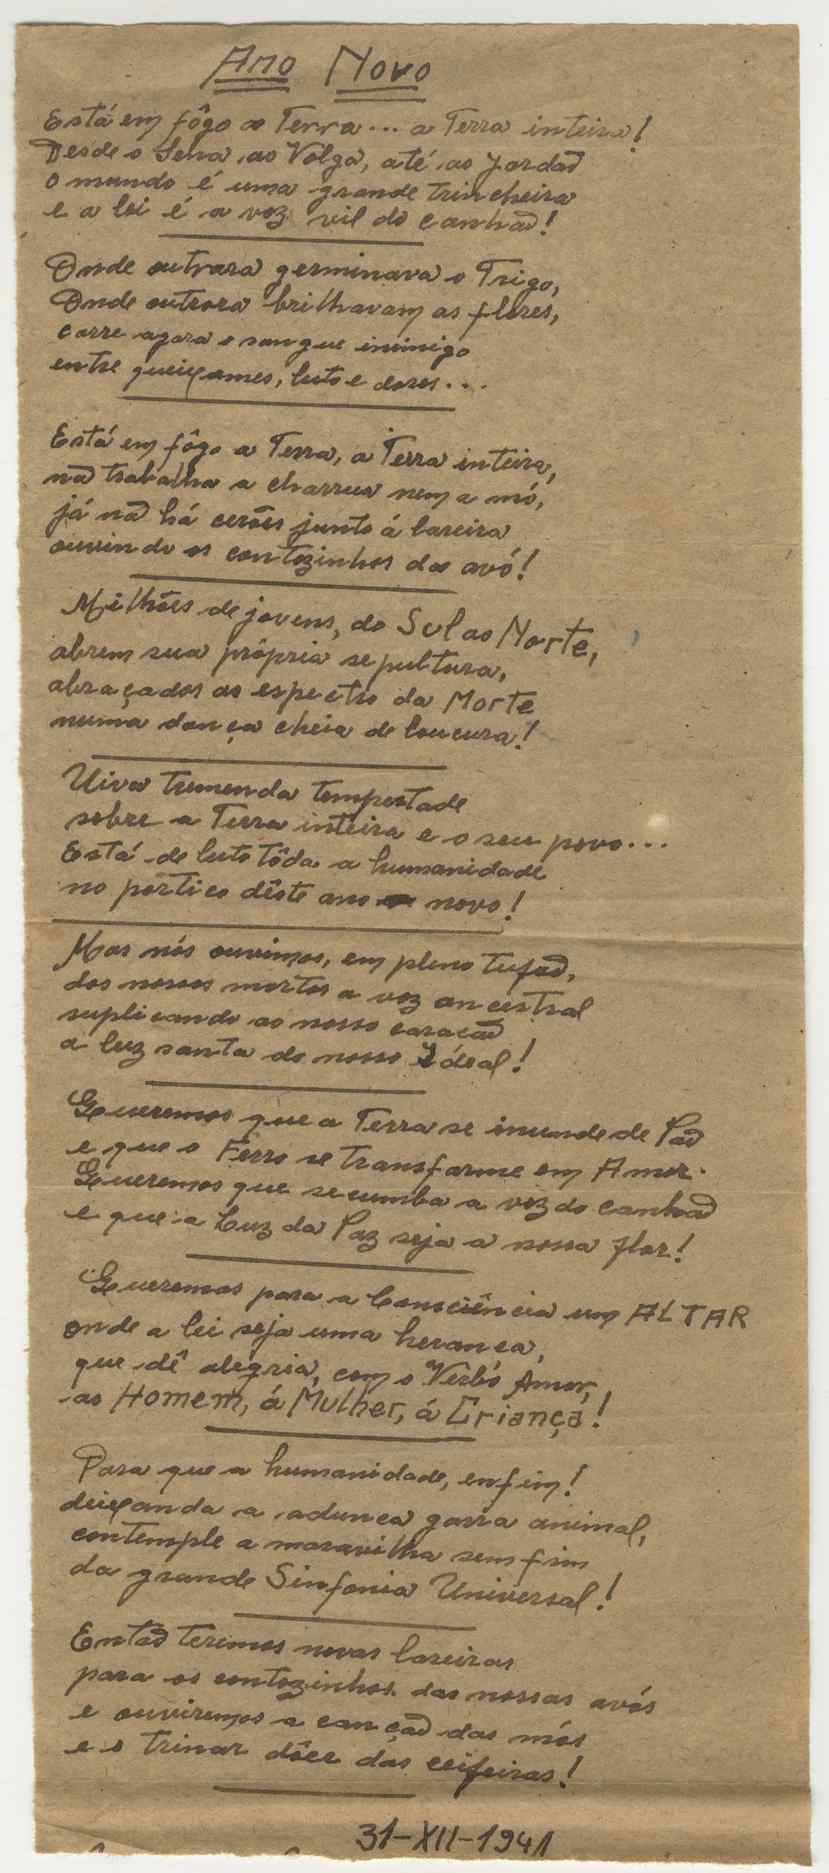 Ano Novo
Está em fôgo a Terra... a Terra inteira!
Desde o Sena ao Volga, até ao Jordão
o mundo é uma grande trincheira
e a lei é a voz vil do canhão!
Onde outrora germinava o Trigo,
Onde outrora brilhavam as flores,
corre agora o sangue inimigo
entre queixumes, luto e dores...
Está em fôgo a Terra, a Terra inteira,
não trabalha a charrua nem a mó,
já não há cerões junto á lareira
ouvindo os contozinhos da avó!
Milhões de jovens, do Sul ao Norte,
abrem sua própria sepultura,
abraçados ao espectro da Morte
numa dança cheia de loucura!
Uiva tremenda tempestade
sobre a Terra inteira e o seu povo...
Está de luto tôda a humanidade
no pórtico dêste ano novo!
Mas nós ouvimos, em pleno tufão,
dos nossos mortos a voz ancestral
suplicando ao nosso coração
a luz santa do nosso Idéal!
Queremos que a Terra se inunde de Pão
e que o Ferro se transforme em Amor.
Queremos que sucumba a voz do canhão
e que a Luz da Paz seja a nossa flor!
Queremos para a Consciência um ALTAR
onde a lei seja uma herança,
que dê alegria, com o Verbo Amar,
ao Homem, á Mulher, á Criança!
Para que a humanidade, enfim!
deixando a adunca garra animal,
contemple a maravilha sem fim
da grande Sinfonia Universal!
Então teremos novas lareiras
para os contozinhos das nossas avós
e ouviremos a canção das mós
e o trinar dôce das ceifeiras!
31-XII-1941